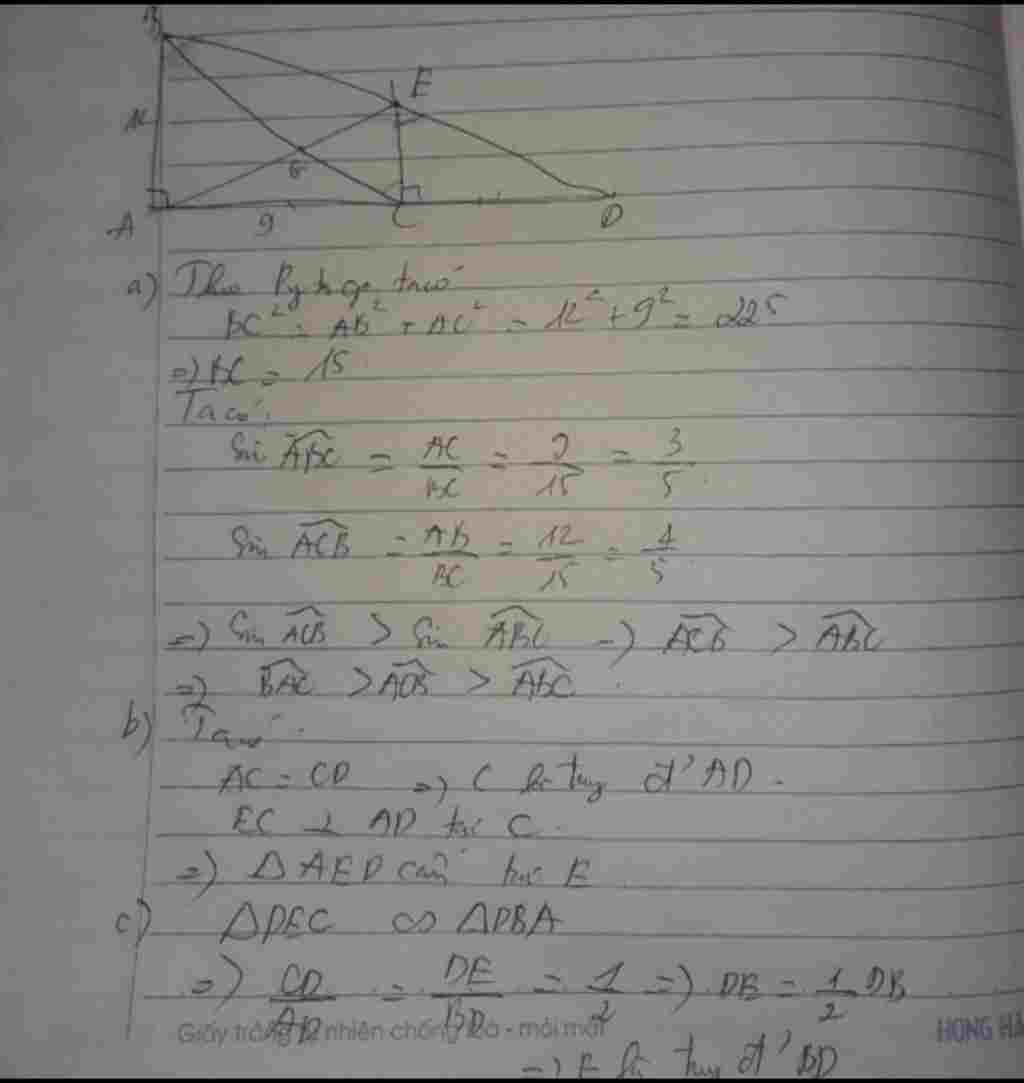 B
E
12
G
A
9
C
D
a) Theo Pytago ta có
BC² = AB² + AC² = 12² + 9² = 225
=) BC = 15
Ta có:
Sin ABC = AC/BC = 9/15 = 3/5
Sin ACB = AB/BC = 12/15 = 4/5
=) Sin ACB > Sin ABC =) ACB > ABC
=) BAC > ACB > ABC.
b) Ta có:
AC = CD =) C là trung đ' AD.
EC ⊥ AD tại C.
=) Δ AED cân tại E
c) ΔDEC ∽ ΔDBA
=) CD/AD = DE/BD = 1/2 =) DE = 1/2 DB
Giấy trắng tự nhiên chống lóa - mỏi mắt
HONG HA
=) E là trung đ' BD